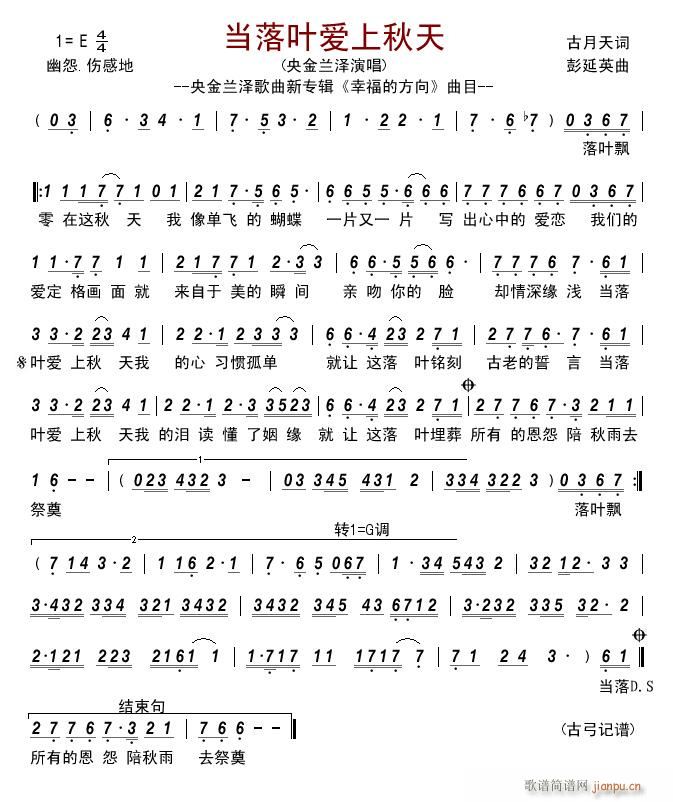 当落叶爱上秋天
1= E 4/4
古月天词
幽怨.伤感地
(央金兰泽演唱)
彭延英曲
--央金兰泽歌曲新专辑《幸福的方向》曲目--
( 0 3 | 6 · 3 4 · 1 | 7 · 5 3 · 2 | 1 · 2 2 · 1 | 7 · 6 · ♭7 ) 0 3 6 7 |
落叶飘
|: 1 1 1 7 7 1 0 1 | 2 1 7 · 5 6 5 · | 6 6 5 5 · 6 6 6 | 7 7 7 6 6 7 0 3 6 7 |
零 在这秋 天 我 像单飞 的 蝴蝶 一片又一 片 写 出心中的 爱恋 我们的
1 1 · 7 7 1 1 | 2 1 7 7 1 2 · 3 3 | 6 6 · 5 5 6 6 | 7 7 7 6 7 · 6 1 |
爱定 格画 面 就 来自于 美的 瞬 间 亲 吻 你的 脸 却情深缘 浅 当落
3 3 · 2 2 3 4 1 | 2 2 1 · 2 3 3 3 | 6 6 · 4 2 3 2 1 | 2 7 7 6 · 7 · 6 1 |
𝄋叶爱 上秋 天我 的心 习惯孤单 就让 这落 叶铭刻 古老的誓 言 当落
3 3 · 2 2 3 4 1 | 2 2 1 2 · 3 3 5 2 3 | 6 6 · 4 2 3 2 1 | 2 7 7 6 7 · 3 2 1 1 |
叶爱 上秋 天我 的泪 读 懂 了姻 缘 就 让 这落 叶埋葬 所有 的恩怨 陪 秋雨去
1
1 6 - - | ( 0 2 3 4 3 2 3 - - | 0 3 3 4 5 4 3 1 2 | 3 3 4 3 2 2 3 ) 0 3 6 7 :|
祭奠
落叶飘
转1=G调
2
( 7 1 4 3 · 2 | 1 1 6 2 · 1 | 7 · 6 · 5 0 6 7 | 1 · 3 4 5 4 3 2 | 3 2 1 2 · 3 3 |
3 · 4 3 2 3 3 4 3 1 2 3 4 3 2 | 3 4 3 2 3 3 4 4 · 3 6 7 1 2 | 3 · 2 3 2 3 3 5 3 2 · 2 |
2 · 1 2 1 2 2 3 2 1 6 1 1 | 1 · 7 1 7 1 1 1 7 1 7 7 | 7 1 2 4 3 · ) 6 1 ‖
当落D.S
结束句
2 7 7 6 7 · 3 2 1 | 7 6 6 - - ‖
(古弓记谱)
所有的恩 怨 陪秋雨 去祭奠
歌谱简谱网
jianpu.cn